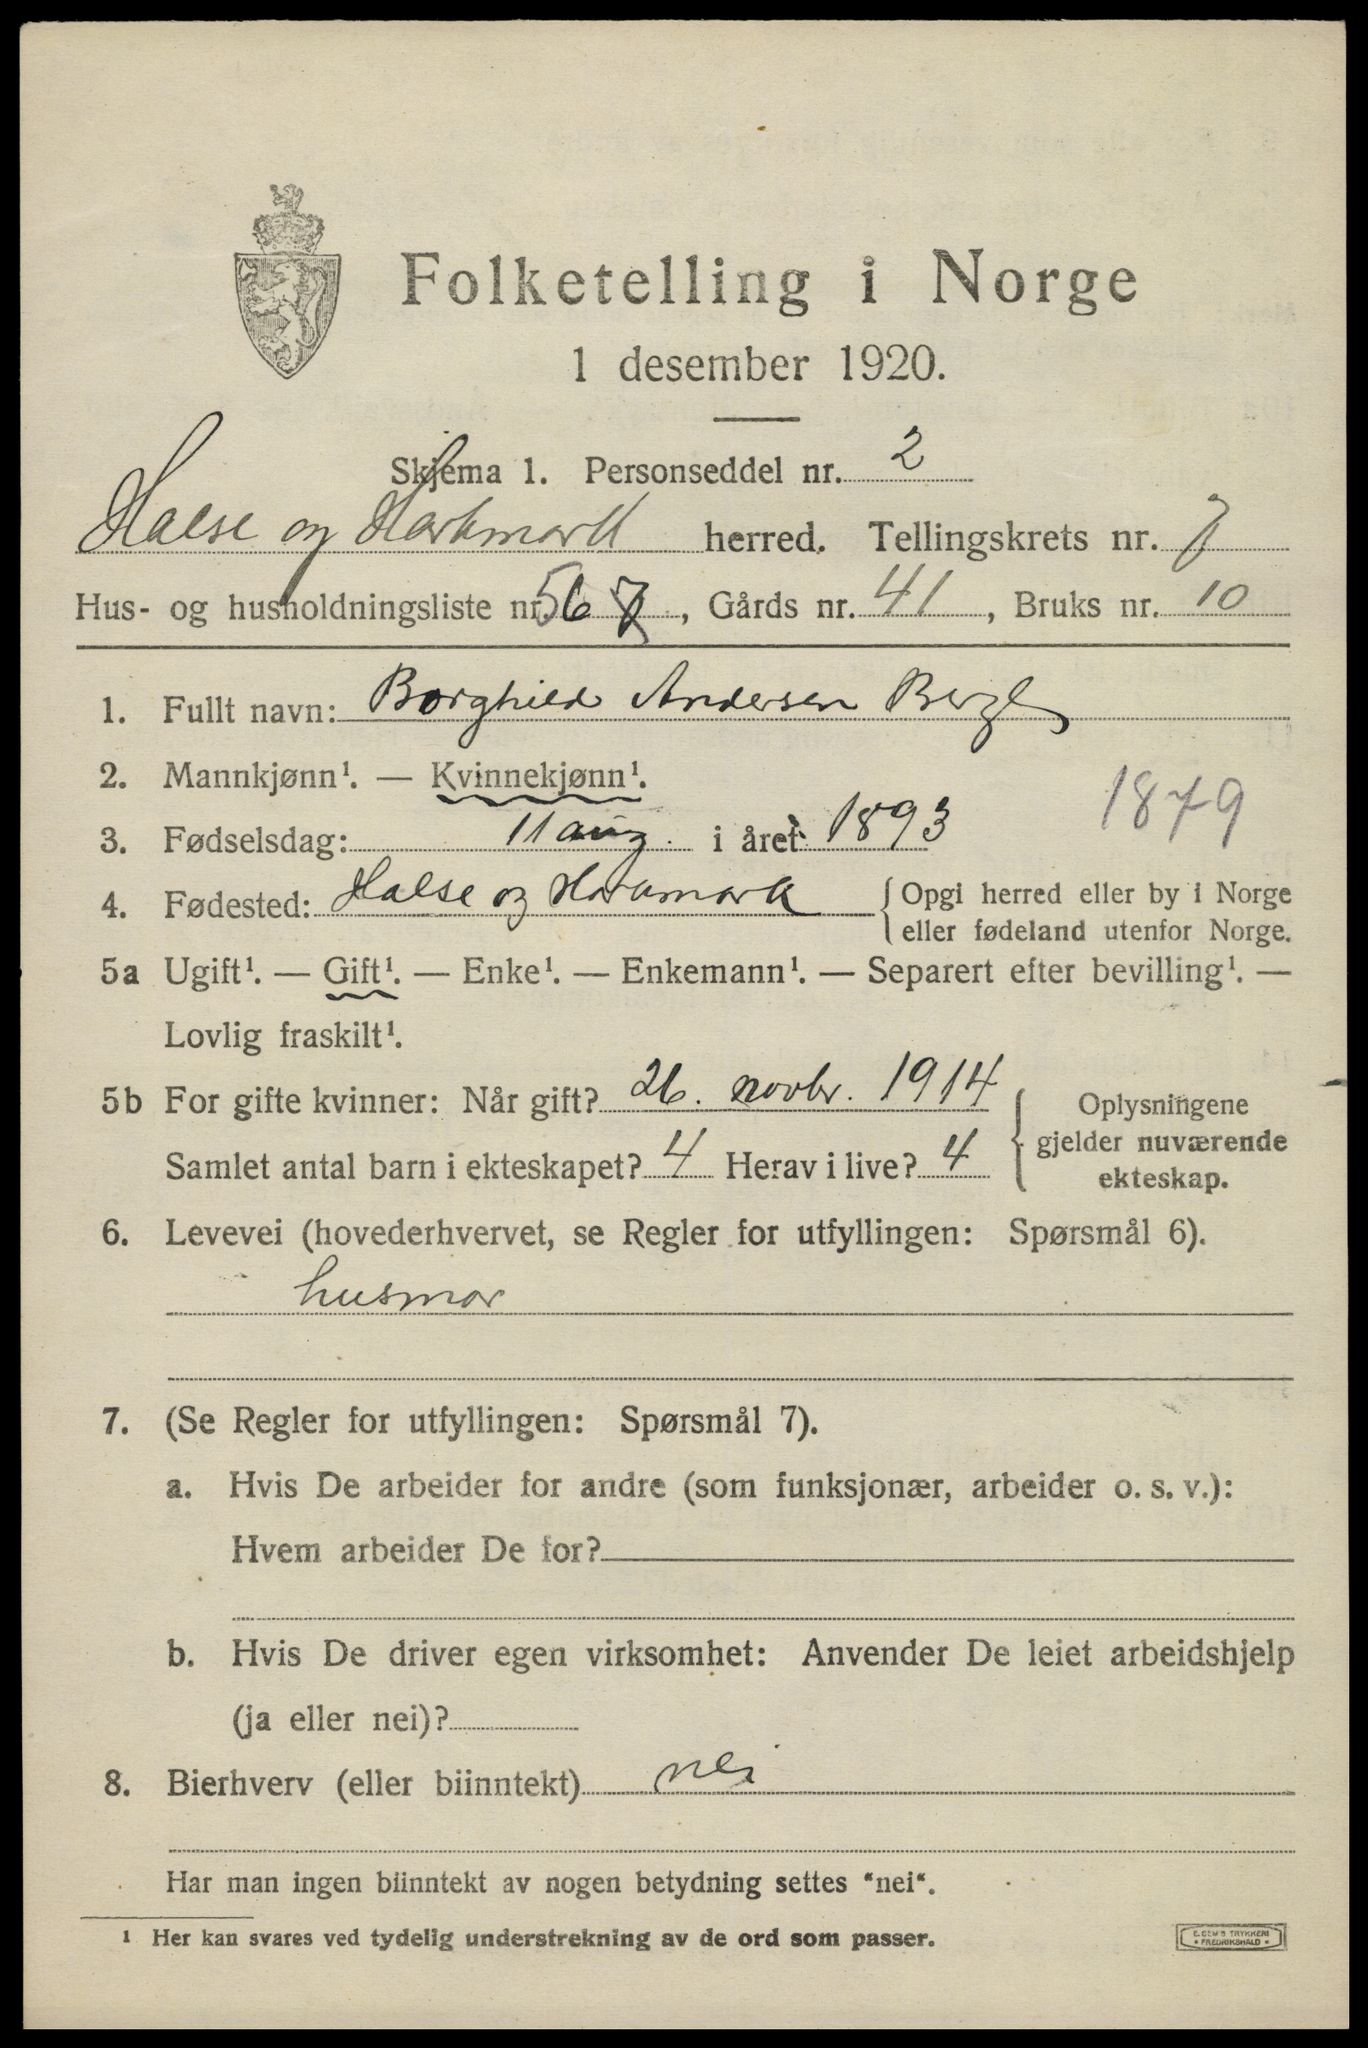 Folketelling i Norge
1 desember 1920.
Skjema 1. Personseddel nr. 2
Halse og Harkmark herred. Tellingskrets nr. 7
Hus- og husholdningsliste nr. 56 7, Gårds nr. 41, Bruks nr. 10
1. Fullt navn: Borghild Andersen Berge
2. Mannkjønn¹. — Kvinnekjønn¹.
1879
3. Fødselsdag: 11 aug. i året 1893
4. Fødested: Halse og Harkmark { Opgi herred eller by i Norge
eller fødeland utenfor Norge.
5a Ugift¹. — Gift¹. — Enke¹. — Enkemann¹. — Separert efter bevilling¹. —
Lovlig fraskilt¹.
5b For gifte kvinner: Når gift? 26. novbr. 1914
Samlet antal barn i ekteskapet? 4 Herav i live? 4
Oplysningene
gjelder nuværende
ekteskap.
6. Levevei (hovederhvervet, se Regler for utfyllingen: Spørsmål 6).
husmor
7. (Se Regler for utfyllingen: Spørsmål 7).
a. Hvis De arbeider for andre (som funksjonær, arbeider o. s. v.):
Hvem arbeider De for?
b. Hvis De driver egen virksomhet: Anvender De leiet arbeidshjelp
(ja eller nei)?
8. Bierhverv (eller biinntekt) nei
Har man ingen biinntekt av nogen betydning settes "nei".
¹ Her kan svares ved tydelig understrekning av de ord som passer.
E. SEM'S TRYKKERI
* FREDRIKSHALD *